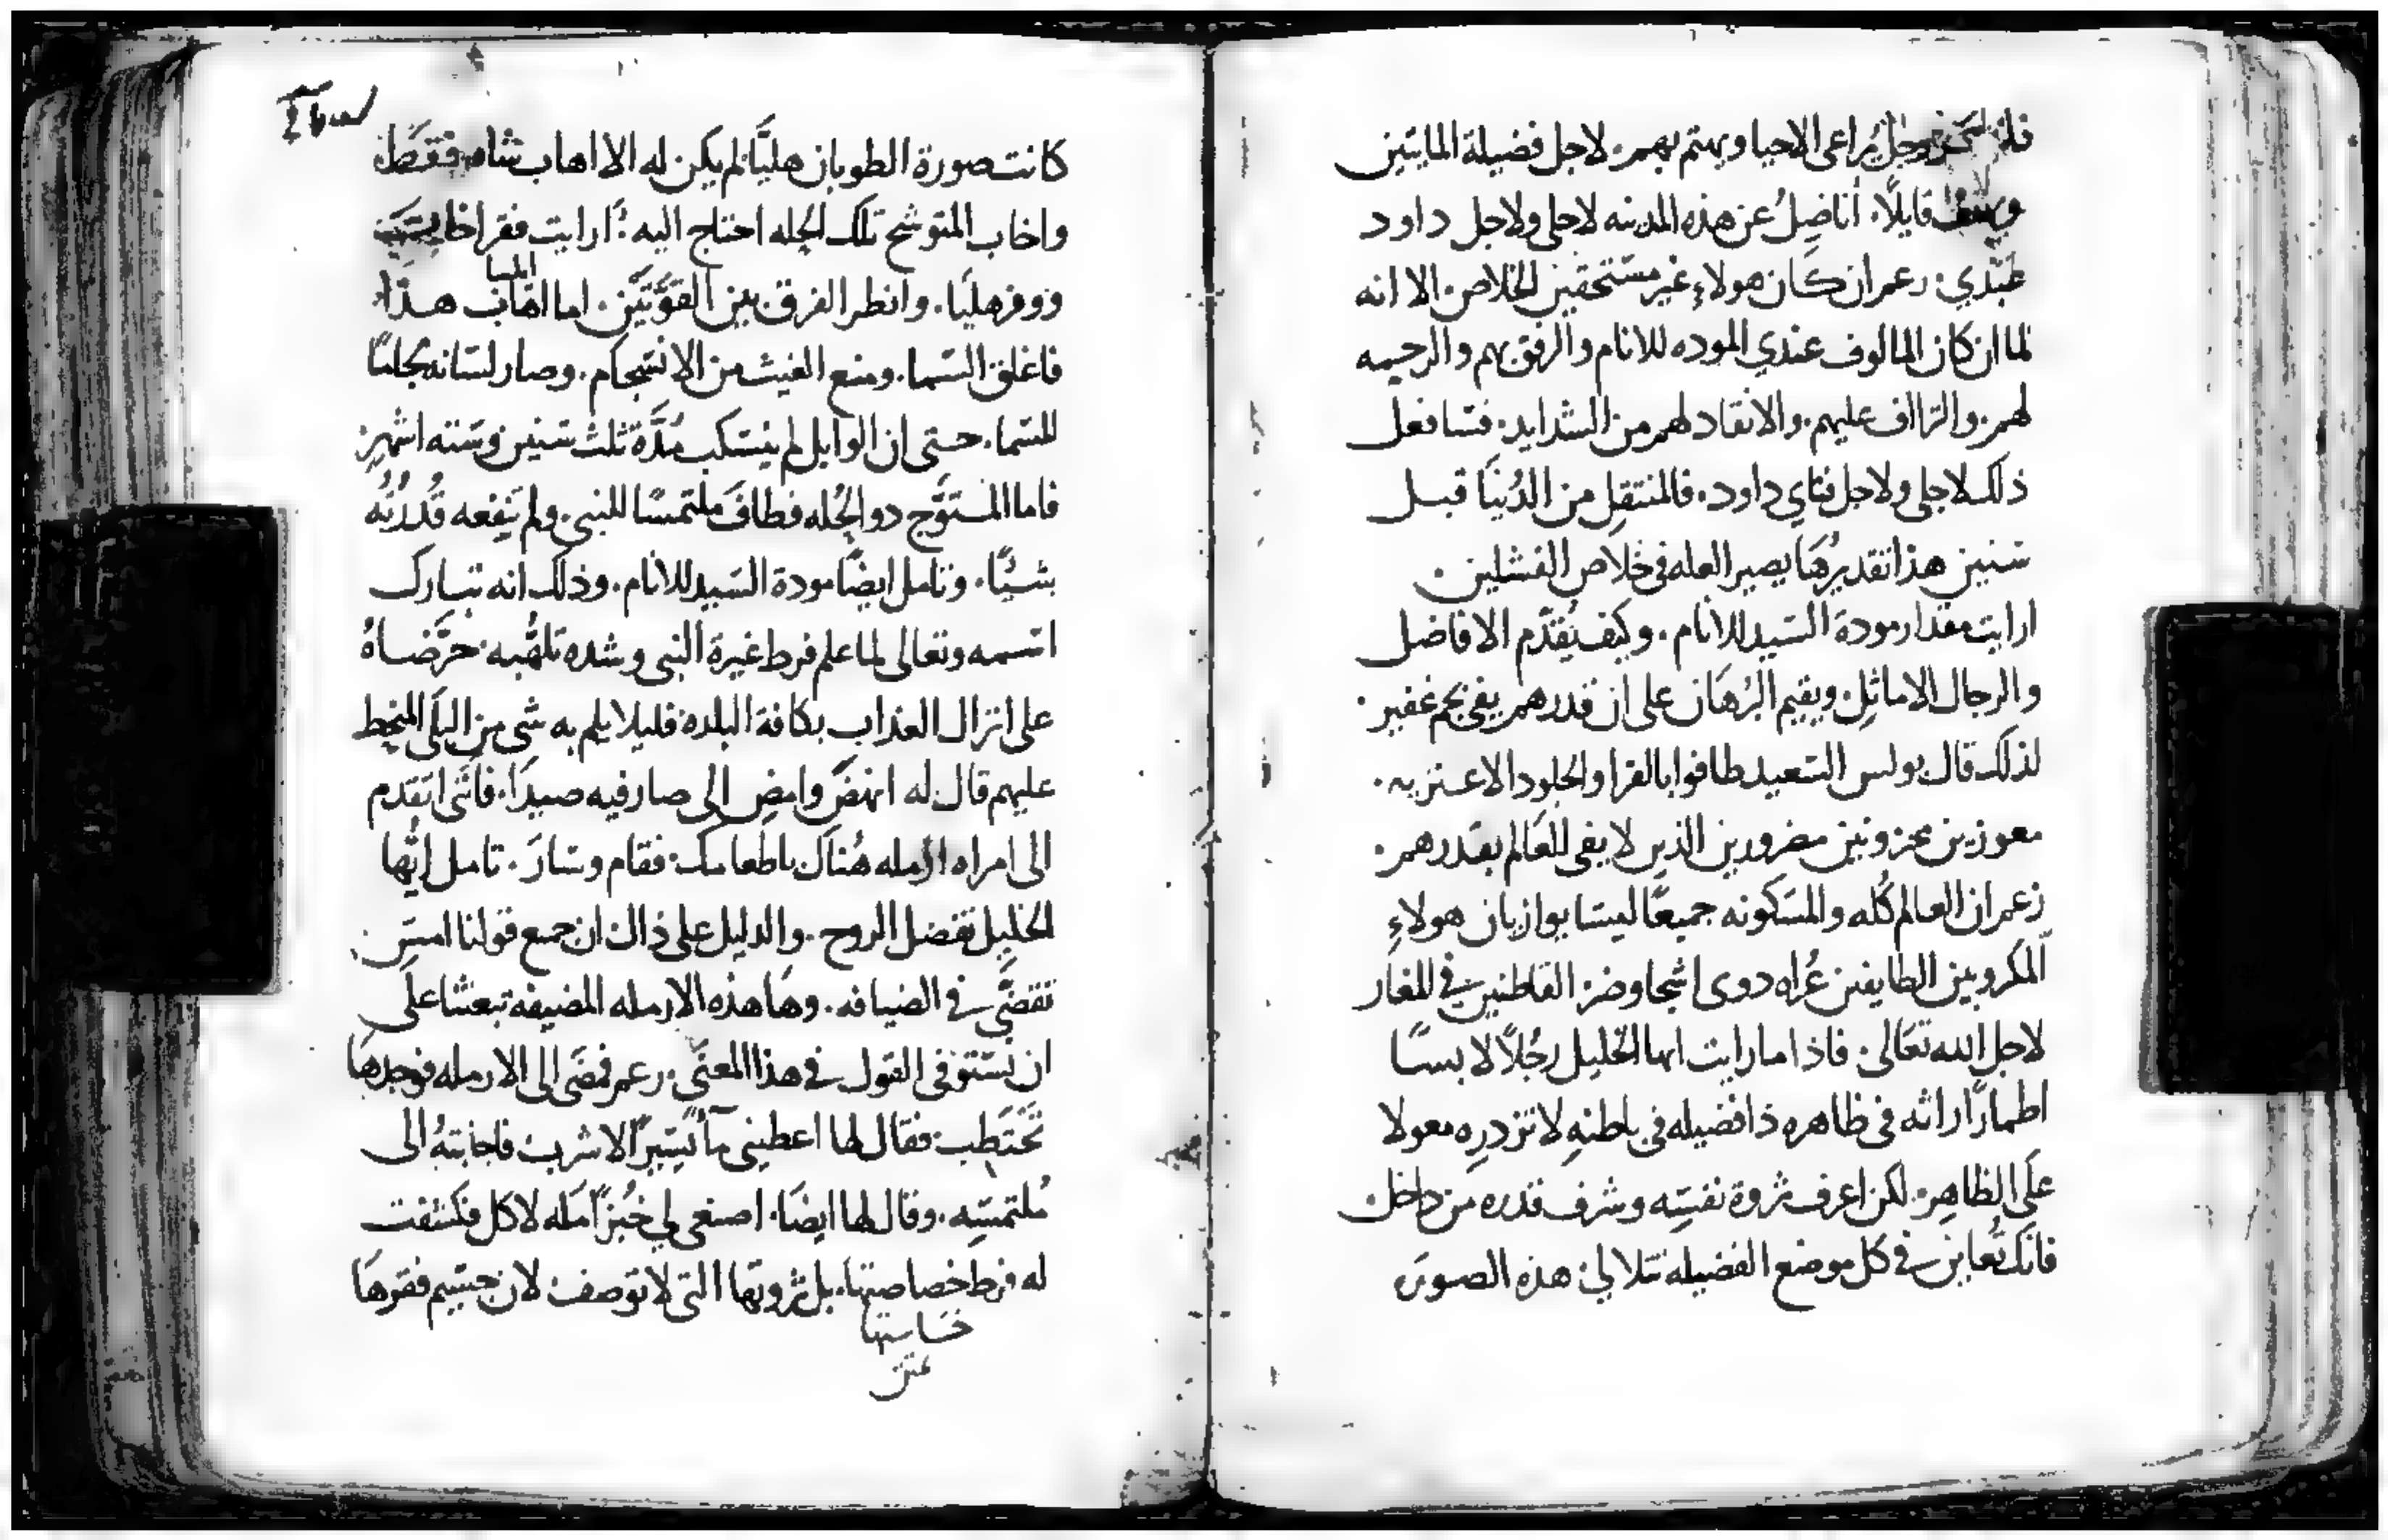 يراعى الاحيا ويهتم بهم. لاجل فضيلة المايتين
قايلًا. أناضِلُ عن هذه المدينه لاجلى ولاجل داود
عَبْدي. زعم ان كان هولاءِ غير مستحقين الخلاص. الا انه
لما ان كان المالوف عندي الموده للانام والرفق بهم والرحمه
لهم. والتراأف عليهم. والانقاد لهم من الشدايد. فسافعل
ذلك لاجلى ولاجل فتاي داود. فالمنتقل من الدُنيَا قبل
سنين هذا تقديرهَا يصير العله فى خلاص الفشلين.
ارايت مقدار مودة السيد للانام. وكيف يُقدّم الافاضل
والرجال الاماثِل. ويقيم البُرهَان على ان قدرهم يفى بجم غفير.
لذلك قال بولس السعيد طافوا بالفرا والجلود الاعنزيه.
معوزين محزونين مضرورين الذين لا يفى العَالم بقدرهم.
زعم ان العالم كُله والمسكونه جميعًا ليسا يوازيان هولاءِ
المكروبين الطايفين عُراه دوى اشجا وضر القاطنين في المغاير
لاجل الله تعَالى. فاذا ما رايت ايها الخليل رجُلًا لابسًا
اطمارًا راثه فى ظاهره ذا فضيله فى باطنهِ لا تزدرِه معولا
علَى الظاهِر. لكن اعرف ثروة نفسَه وشرف قدره من داخل
فانك تُعاين في كل موضع الفضيله تتلالئ هذه الصوره
كانت صورة الطوبان هليَّا لم يكن له الا اهاب شاه فقط
واخاب المتوشح تلك الحله احتاج اليه. أرايت فقر اخاب
ووفر هليَا. وانظر الفرق بين القوَّتَيْن. اما اهاب هذا
ايليا
فاغلق السَما. ومنع الغيث من الانسجام. وصار لسَانه لجامًا
للسَما. حتى ان الوابل لم ينسَكب مُدَّة ثلث سَنين وسَته اشهر
فاما المستوَّج دو الحُله فطافَ ملتمسًا للنبى. ولم يَنفعه قُدرُتُه
بشيًا. وتامل ايضًا مودة السَيد للانام. وذلك انه تبارك
اسَمه وتعالى لما علم فرط غيرة النبى وشده تلهُّبه حرَّضاهُ
على انزال العذاب بكافة البلده. فليلا يلم به شى من البلَى المنحط
عليهم قال له انهضَ وامضِ الى صارفيه صيدَا. فانّنى اتقدم
الى امراه ارمله هُناك باطعامك. فقام وسَارَ. تامل ايُّها
الخليل تفضل الروح. والدليل على ذاك ان جمع قولنا امسَ
تقضَّى في الضيافه. وهَا هذه الارمله المضيفة تبعثنا علَى
ان نسَتوفى القول في هذا المعنَى. زعم فمضَى الى الارمله فوجدهَا
تَحْتَطِب. فقال لها اعطينى مآ يسَيرًا لاشرب. فاجابتهُ الى
مُلتمسَه. وقال لها ايضَا. اصنعى لي خُبزًا مَله لاكل فكشفت
له فرط خصاصتها. بل ثروتها التى لا توصف. لان جسَيم فقرهَا
خساستها